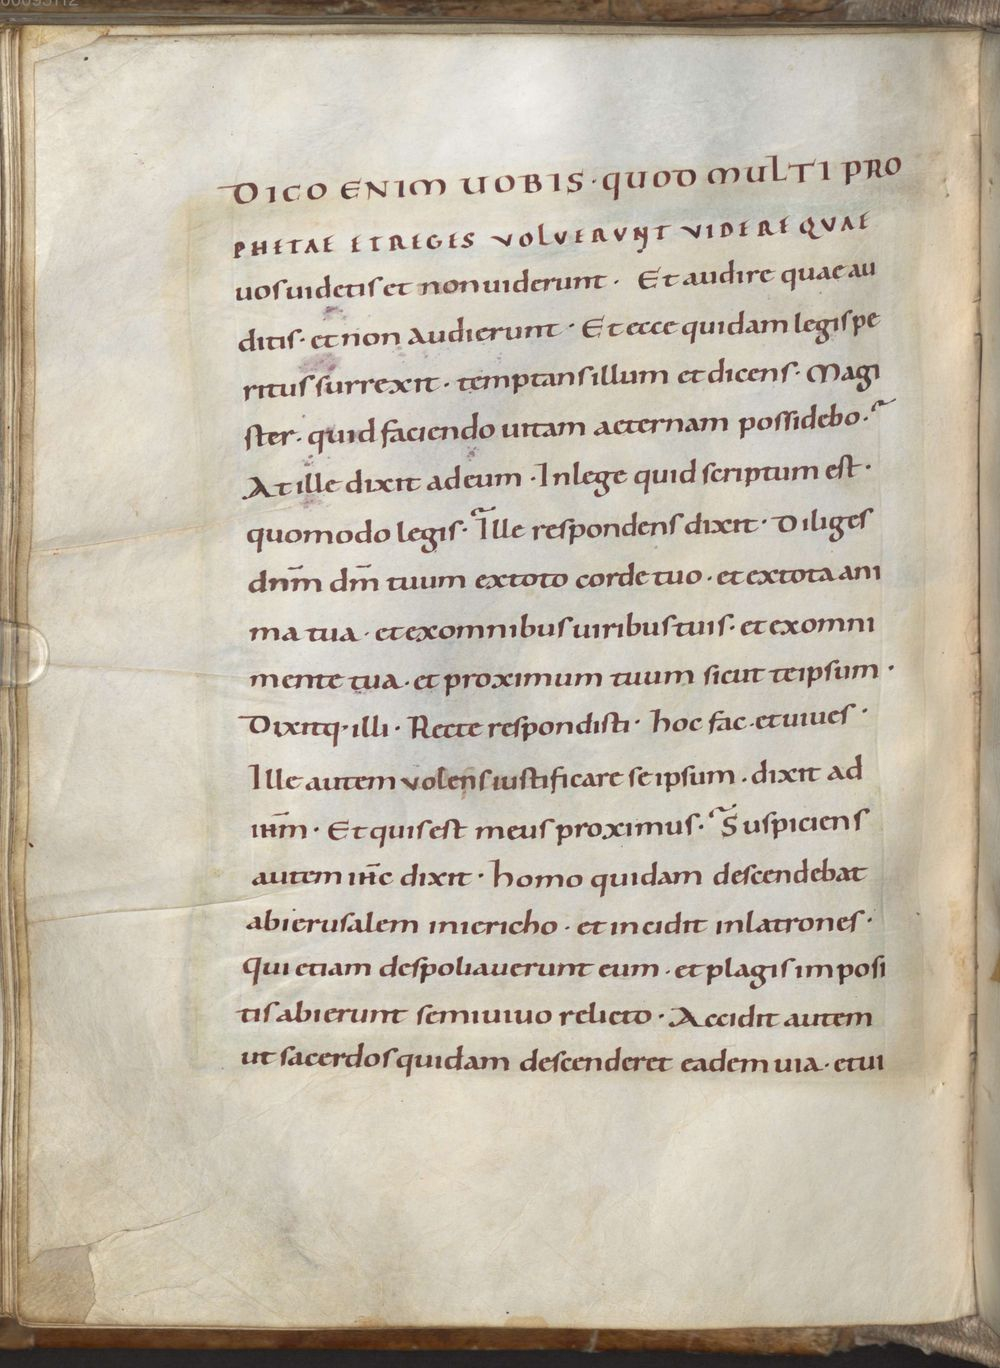 00095112
DICO ENIM UOBIS · QUOD MULTI PRO
PHETAE ET REGES VOLVERVNT VIDERE QVAE
uos uidetis et non uiderunt · Et audire quae au
ditis · et non audierunt · Et ecce quidam legis pe
ritus surrexit · temptans illum et dicens · Magi
ster · quid faciendo uitam aeternam possidebo ·
At ille dixit ad eum · In lege quid scriptum est ·
quomodo legis · Ille respondens dixit · Diliges
dn̄m dm̄ tuum ex toto corde tuo · et ex tota ani
ma tua · et ex omnibus uiribus tuis · et ex omni
mente tua · et proximum tuum sicut te ipsum ·
Dixitq· illi · Recte respondisti · hoc fac · et uiues ·
Ille autem volens iustificare se ipsum · dixit ad
ihm̄ · Et quis est meus proximus · Suspiciens
autem ihc̄ dixit · homo quidam descendebat
ab ierusalem in iericho · et incidit in latrones ·
qui etiam despoliauerunt eum · et plagis imposi
tis abierunt semiuiuo relicto · Accidit autem
ut sacerdos quidam descenderet eadem uia · et ui